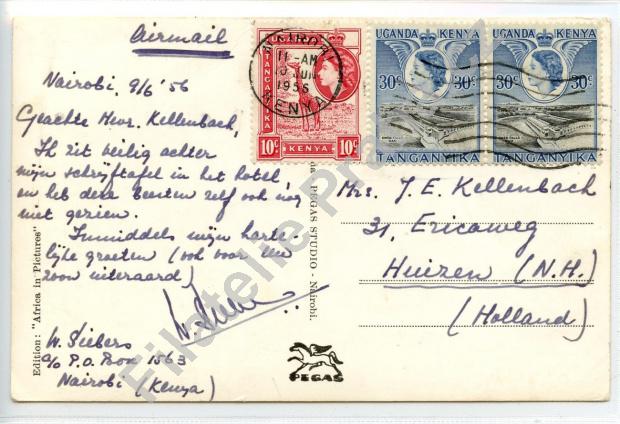 Airmail
Nairobi, 9/6 '56
Geachte Mevr. Kellenbach,
Ik zit veilig achter
mijn schrijftafel in het hotel,
en heb deze beesten zelf ook nog
niet gezien.
Inmiddels mijn harte-
lijke groeten (ook voor uw
zoon uiteraard)
W. Siebers
W. Siebers
c/o P.O. Box 1563
Nairobi (Kenya)
Edition: "Africa in Pictures"
da PEGAS STUDIO - Nairobi.
PEGAS
NAIROBI
11-AM
10 JUN
1956
KENYA
UGANDA
TANGANYIKA
10c KENYA 10c
UGANDA KENYA
30c 30c
TANGANYIKA
UGANDA KENYA
30c 30c
TANGANYIKA
Mrs. J. E. Kellenbach
31, Ericaweg
Huizen (N.H.)
(Holland)
Filatelie Pra